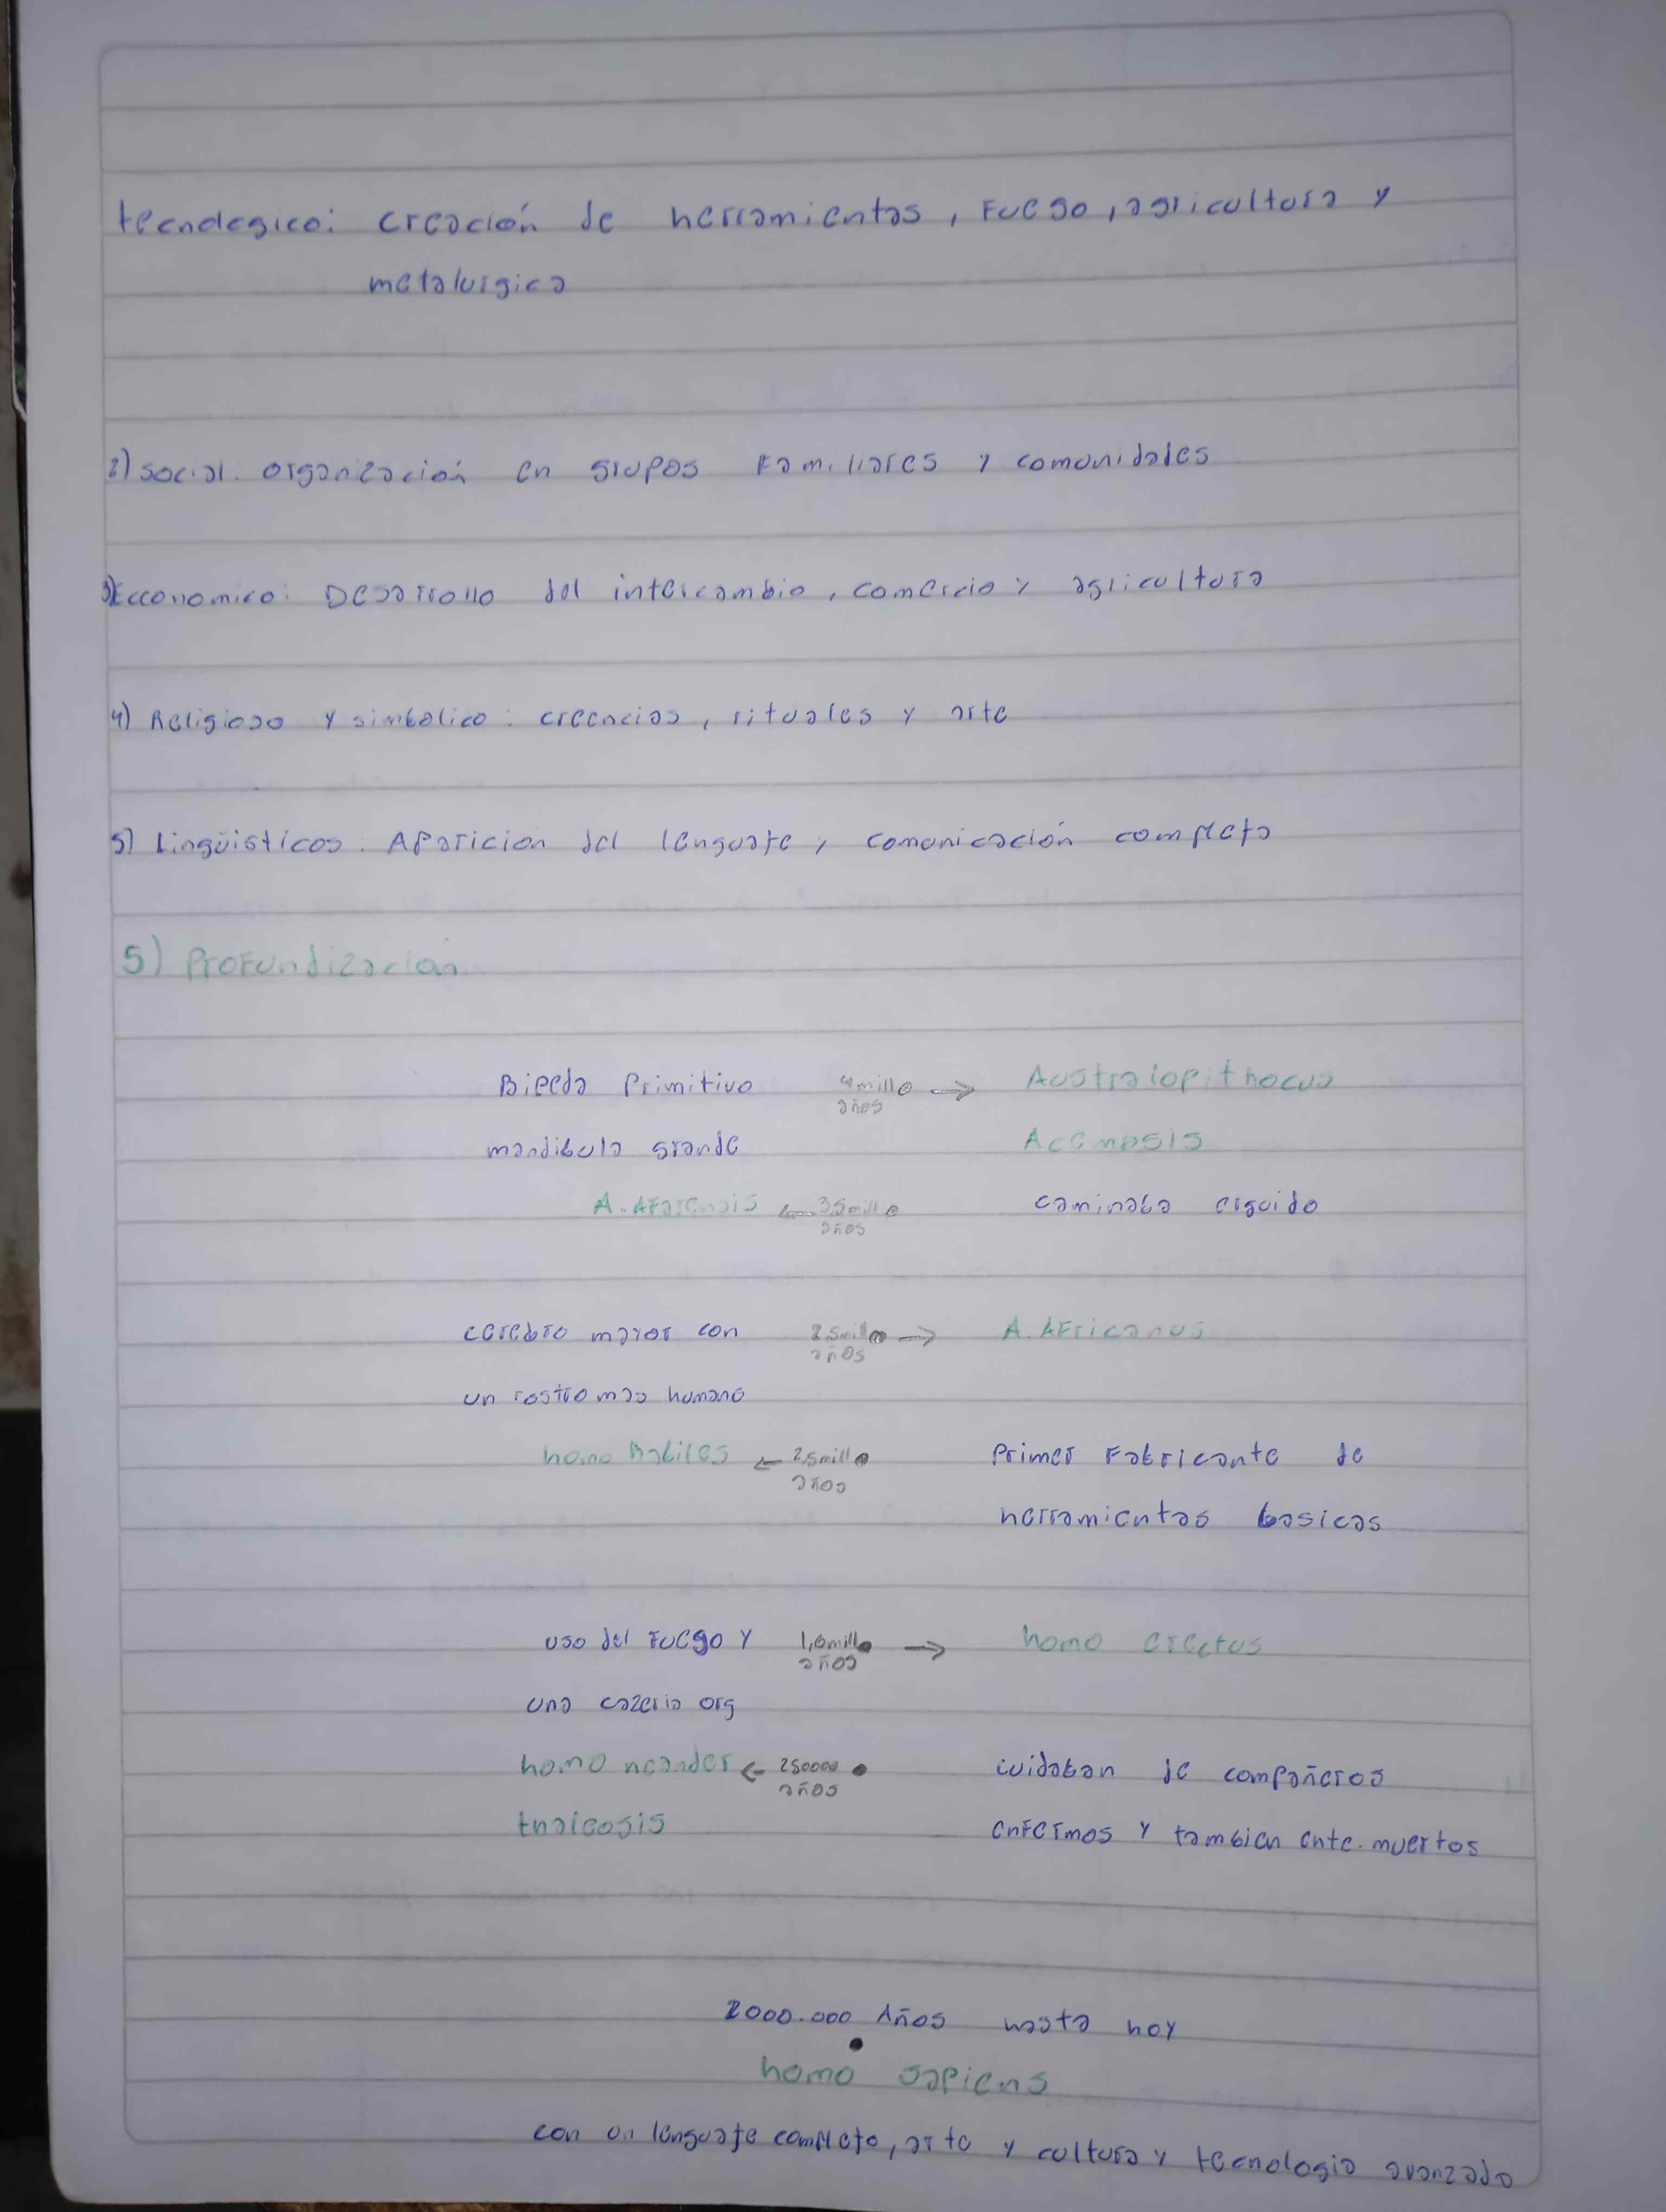 tecnologico: creación de herramientas, Fuego, agricultura y
metalurgica
2) social: organización en grupos Familiares y comunidades
3)Ecconomico: Desarrollo del intercambio, comercio y agricultura
4) Religioso y simbolico: creencias, rituales y arte
5) Lingüisticos: Aparicion del lenguaje y comunicación completa
5) Profundización
Bipeda Primitivo 4 mill años → Australopithocus
mandibula grande
A. Afarensis ← 3,5 mill años caminaba erguido
cerebro mayor con 2,5 mill años → A. Africanus
un rostro mas humano
homo Habiles ← 2,5 mill años Primer Fabricante de
herramientas basicas
uso del Fuego y 1,6 mill años → homo erectus
una cazeria org
homo neander ← 250000 años cuidaban de compañeros
thaleosis enfermos y tambien ente. muertos
2000.000 Años hasta hoy
homo sapiens
con un lenguaje completo, arte y cultura y tecnologia avanzada